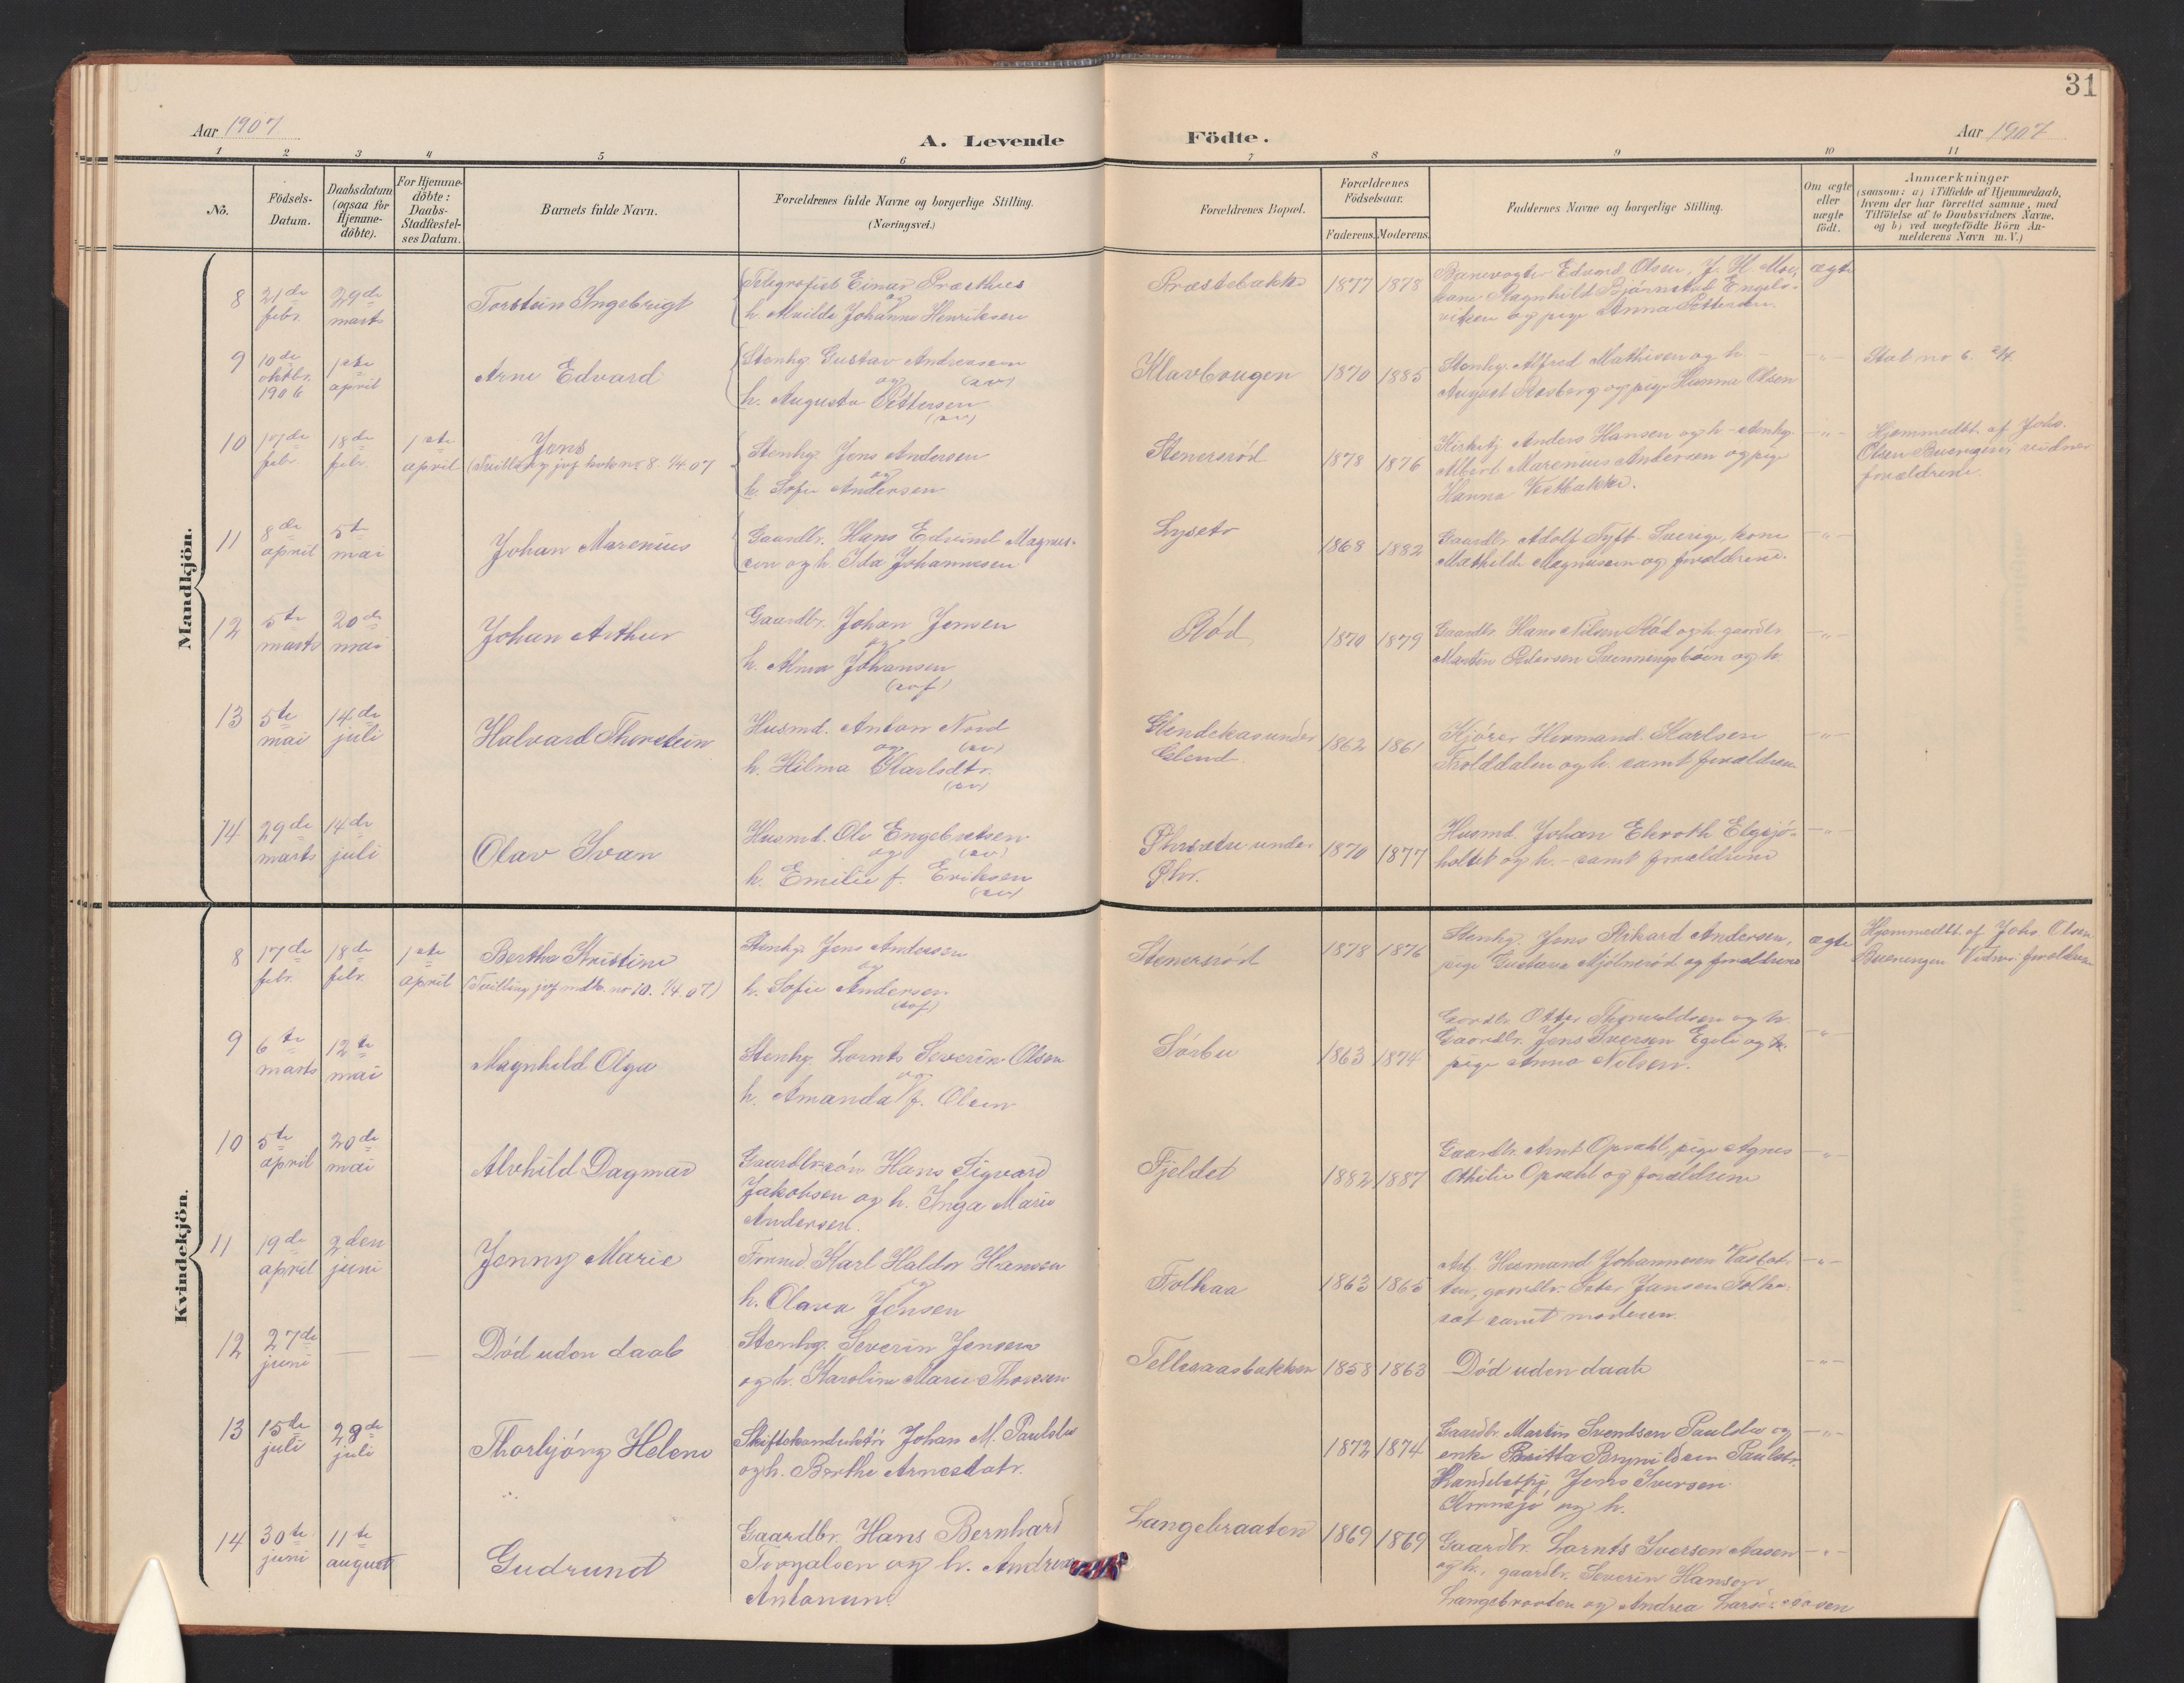 31
Aar 1907
A. Levende Födte.
Aar 1907
1 2 3 4 5 6 7 8 9 10 11
No.
Födsels-Datum.
Daabsdatum (ogsaa for Hjemme-döbte).
For Hjemme-döbte: Daabs-Stadfæstel-ses Datum.
Barnets fulde Navn.
Forældrenes fulde Navne og borgerlige Stilling. (Næringsvei.)
Forældrenes Bopæl.
Forældrenes Födselsaar.
Faderens. Moderens.
Faddernes Navne og borgerlige Stilling.
Om ægte eller uægte födt.
Anmærkninger
(saasom: a) i Tilfælde af Hjemmedaab,
hvem der har forrettet samme, med
Tilföielse af to Daabsvidners Navne.
og b) ved uægtefödte Börn An-
melderens Navn m. V.)
Mandkjön.
8 21de febr. 29de marts Torstein Ingebrigt
Telegrafist Einar Præsthus
og
h. Alvilde Johanne Henriksen
Præstebakke 1877 1878
Banevogter Edvard Olsen, J. H. Moe,
kone Ragnhild Bjørnstad Engels-
viken og pige Anna Pettersen.
ægte
9 10de oktbr. 1906 1ste april Arne Edvard
Stenhg. Gustav Andreassen
og
h. Augusta Pettersen
Klavbougen 1870 1885
Stenhg. Alfred Mathisen og h. -
August Rosberg og pige Hanna Olsen
Stat no 6.
10 17de febr. 18de febr. 1ste april Jens
(Tvilling jvf kvk no 8. 1/4 07
Stenhg Jens Andersen
og
h. Sofie Andersen
Stenersrød 1878 1876
Kirketj Anders Hansen og h - stenhg.
Albert Marenius Andersen og pige
Hanna Vestbakke.
Hjemmedbt. af Johs.
Olsen Bueringen, vidner
forældrene.
11 8de april 5te mai Johan Marenius
Gaardbr. Hans Edvind Magnus-
sen og h. Ida Johannesen
Lyseto 1868 1882
Gaardbr Adolf Tyft - Sverige, kone
Mathilde Magnussen og forældrene.
12 5te marts 20de mai Johan Arthur
Gaardbr. Johan Jensen
og
h. Alma Johansen
Rød 1870 1879
Gaardbr. Hans Nilsen Rød og h. gaardbr
Martin Pedersen Svenningsbøen og h.
13 5te mai 14de juli Halvard Thorstein
Husmd. Anton Nord
og
h. Hilma Karlsdtr.
Elendekas under
Elend. 1862 1861
Kjører Hermand. Karlsen
Trolddalen og h. samt forældrene
14 29de marts 14de juli Olav Ivan
Husmd. Ole Engebretsen
og
h. Emilie f. Eriksen
under 1870 1877
Husmd. Johan Ekroth Elgsjø-
holtet og h. - samt forældrene
Kvindekjön.
8 17de febr. 18de febr. 1ste april Bertha Kristine
(Tvilling jvf mdk. no 10. 1/4 07)
Stenhg. Jens Andersen
og
h. Sofie Andersen
Stenersrød 1878 1876
Stenhg. Jens Rikard Andersen,
pige Gustava Mjølnerød og forældrene
ægte
Hjemmedbt. af Johs Olsen
Bueringen Vidner: forældrene
9 6te marts 12te mai Magnhild Olga
Stenhg. Lornts Severin Olsen
og
h. Amanda f. Olsen
Sørbu 1863 1874
Gardbr Otter Thorvaldsen og h.
Gaardbr. Jens Iversen og h.
pige Anna Nilsen.
10 5te april 20de mai Alvhild Dagmar
Gaardbr. søn Hans Sigvard
Jakobsen og h. Inga Marie
Andersen.
Fjeldet 1882 1887
Gaardbr. Arnt Opsahl, pige Agnes
Othilie Opsahl og forældrene
11 19de april 2den juni Jenny Marie
Karl Haldor Hansen
og
h. Olava Jensen
Folkaa 1863 1865
Arb. Hermand Johannesen
gaardbr. Peter Jansen
samt moderen.
12 27de juni Død uden daab
Stenhg. Severin Jensen
og h. Karoline Marie Thoresen
Tellesaasbakken 1858 1863
Død uden daab
13 15de juli 28de juli Thorbjørg Helene
Skiftekonduktør Johan M. Paulsbu
og h. Berthe Arnesdatr.
1872 1874
Gaardbr. Martin Svendsen Paulsbu og
enke Britta Brynildsen Paulsbu.
Handelsbtj. Jens Iversen
Kornsjø og h.
14 30te juni 11te august Gudrund
Gaardbr. Hans Bernhard
Torgalsen og h. Andrea
Antonsen.
Langebraaten 1869 1869
Gaardbr. Lornts Iversen Aasen
og h., gaardbr. Severin Hansen
Langebraaten og Andrea